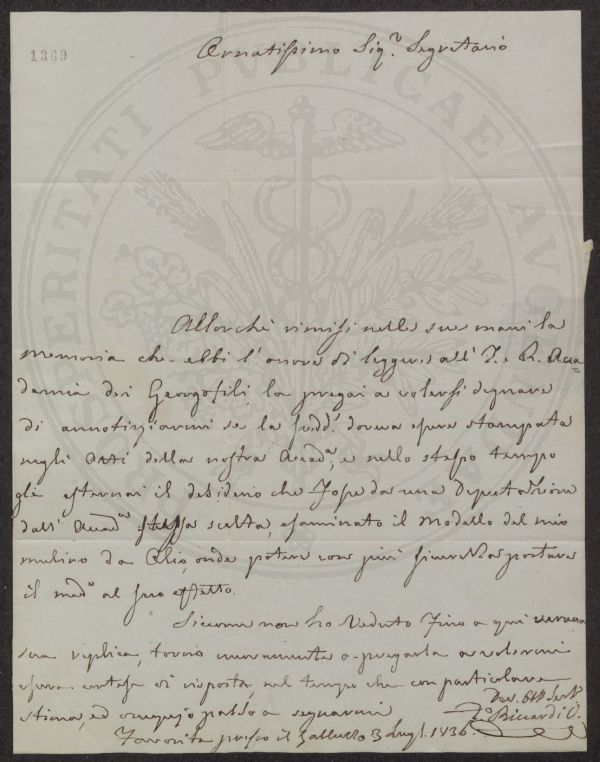 1369
Ornatissimo Sigr. Segretario
Allorchè rimisi nelle sue mani la
memoria che ebbi l'onore di leggere all'I. e R. Acca=
demia dei Georgofili, la pregai a volersi degnare
di annotiziarmi se la sudda. doveva essere stampata
negli Atti della nostra Accada., e nello stesso tempo
gli esternai il desiderio che fosse da una Deputazione
dall' Accada. stessa scelta, esaminato il modello del mio
mulino da Olio, onde potere con più sicurezza portare
il medo. al suo effetto.
Siccome non ho veduto fino a qui veruna
sua replica, torno nuovamente a pregarla a volermi
esser cortese di risposta, nel tempo che con particolare
stima, ed ossequio passo a segnarmi
Dev. Obb Serv.
Riccardi
Favorita presso il Galluzzo 3 Lugl. 1836.
PROSPERITATI PUBLICAE AUGENDAE